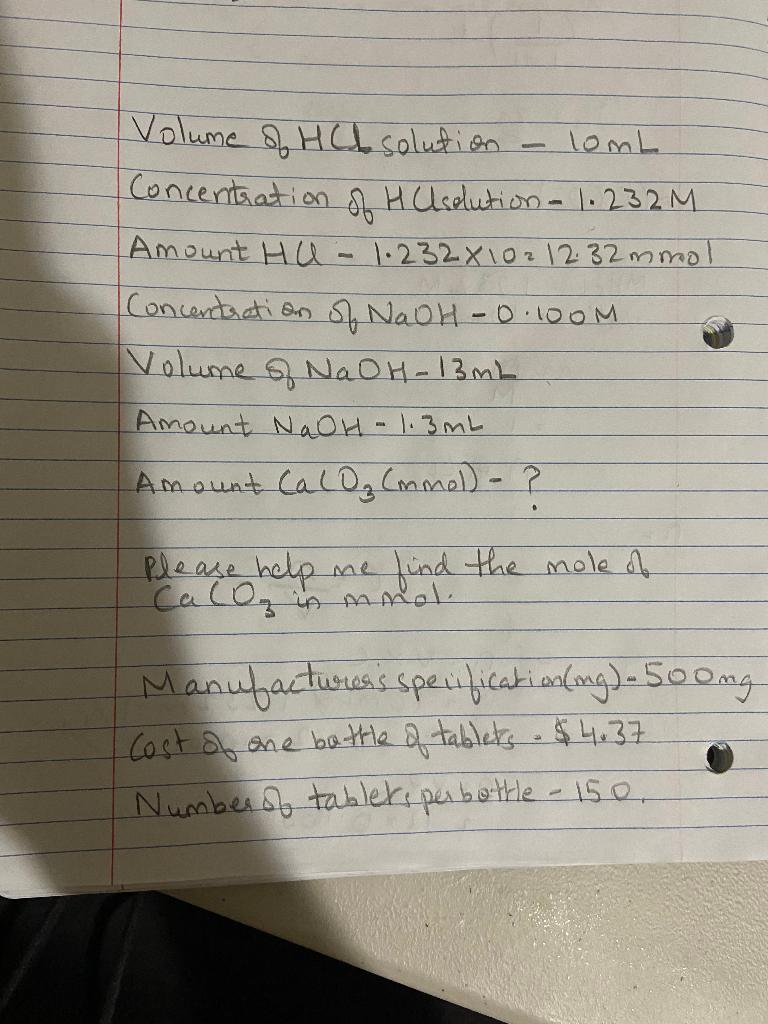 Volume of HCl solution - 10mL
Concentration of HCl solution - 1.232M
Amount HCl - 1.232X10 = 12.32 mmol
Concentration of NaOH - 0.100M
Volume of NaOH - 13mL
Amount NaOH - 1.3mL
Amount CaCO3 (mmol) - ?
Please help me find the mole of
CaCO3 in mmol.
Manufacturer's specification(mg) - 500mg
Cost of one bottle of tablets - $4.37
Number of tablets per bottle - 150.